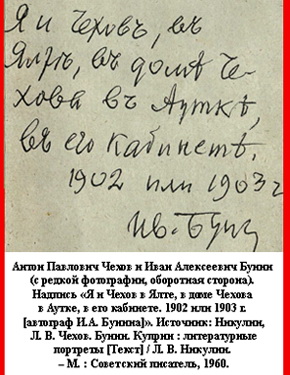 Я и Чеховъ, въ
Ялтѣ, въ домѣ Че-
хова въ Ауткѣ,
въ его кабинетѣ.
1902 или 1903 г
Ив. Бунин
Антон Павлович Чехов и Иван Алексеевич Бунин
(с редкой фотографии, оборотная сторона).
Надпись «Я и Чехов в Ялте, в доме Чехова
в Аутке, в его кабинете. 1902 или 1903 г.
[автограф И.А. Бунина]». Источник: Никулин,
Л. В. Чехов. Бунин. Куприн : литературные
портреты [Текст] / Л. В. Никулин.
– М. : Советский писатель, 1960.